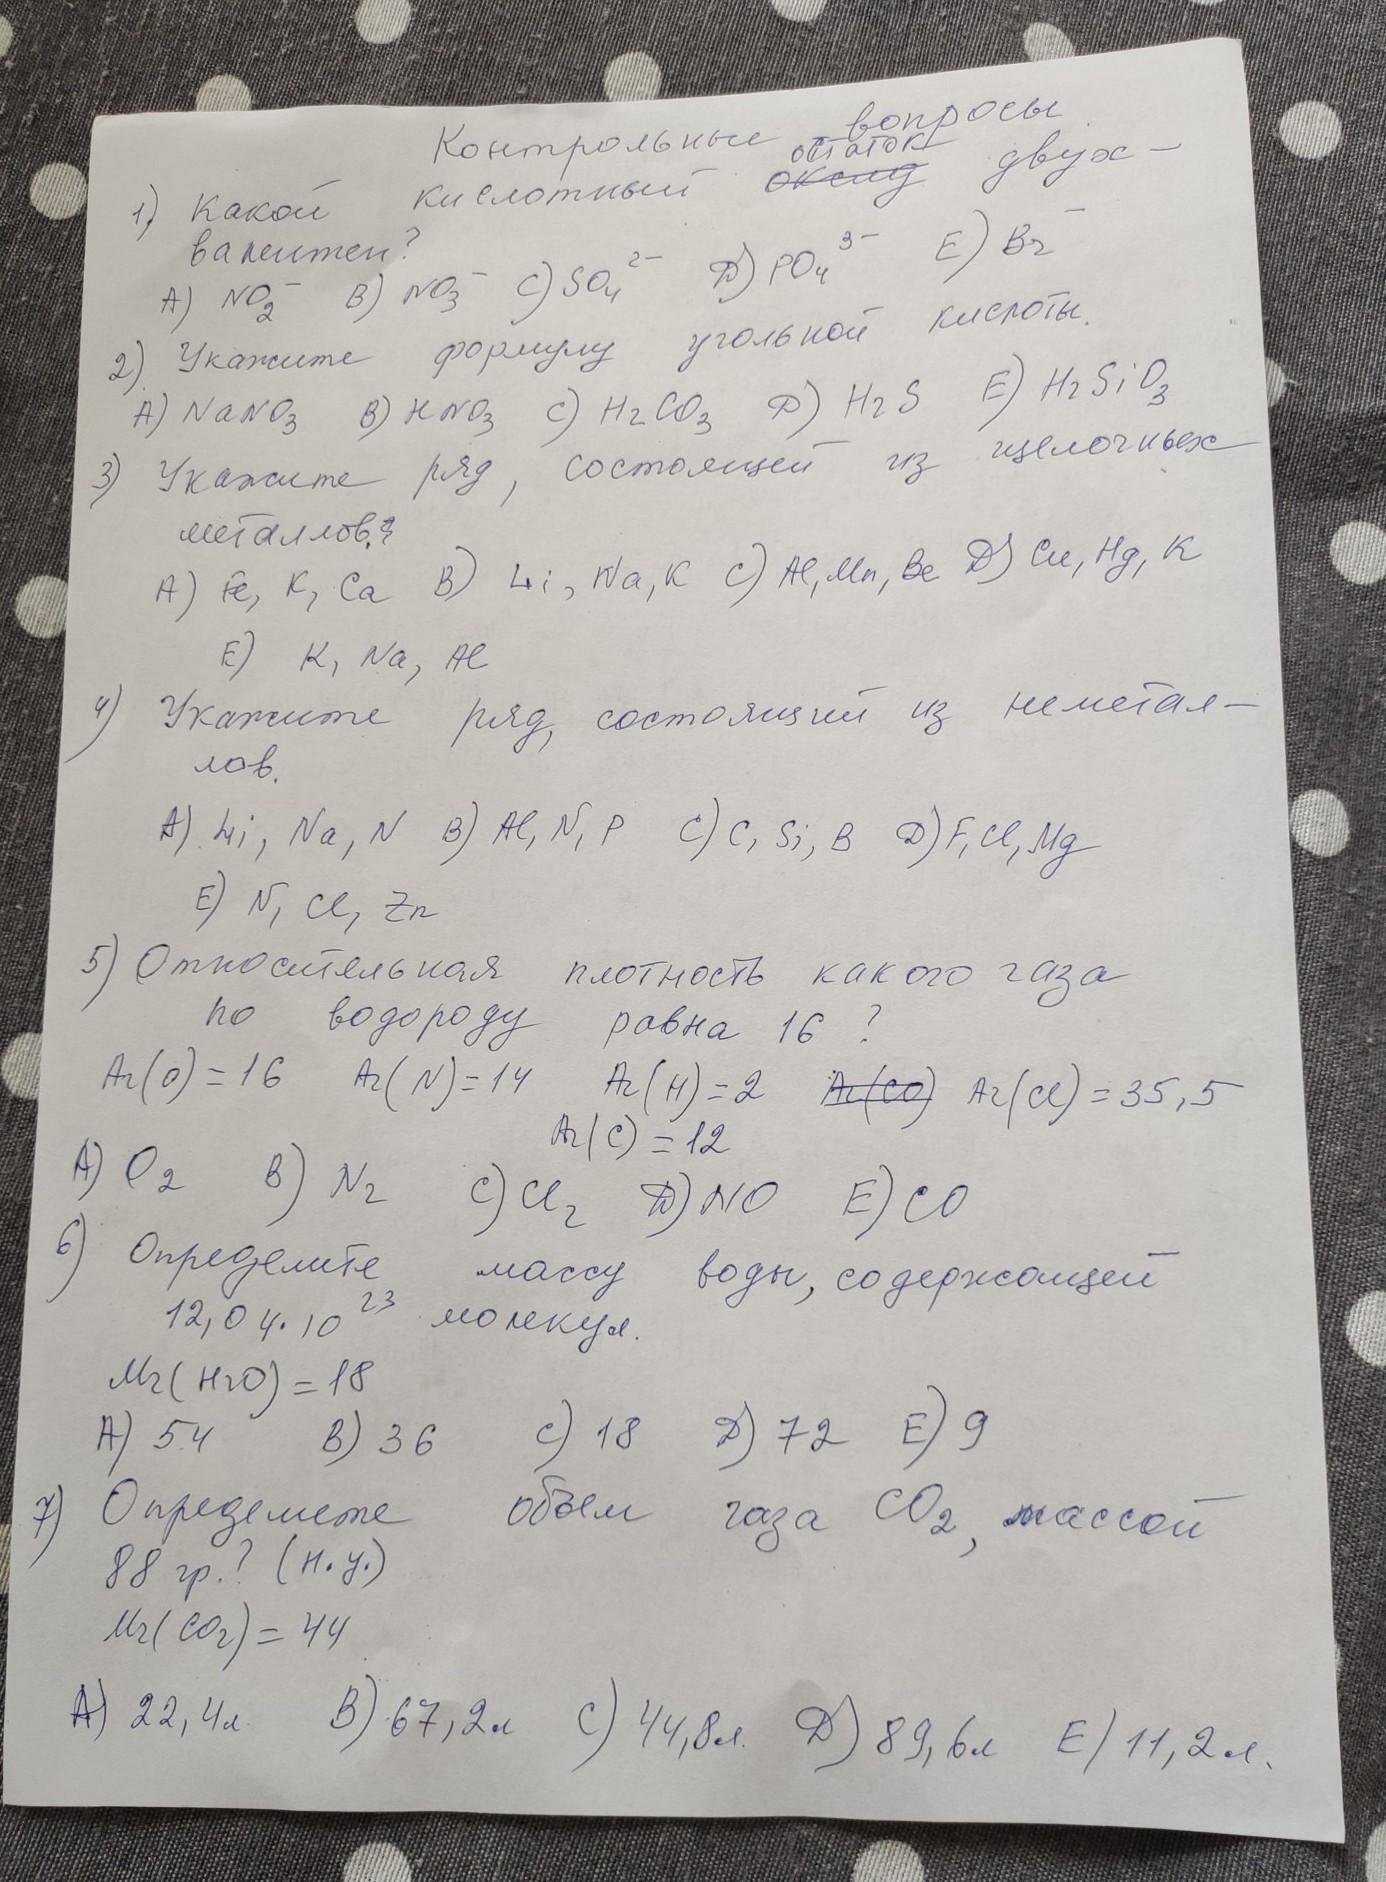 Контрольные вопросы
1) Какой кислотный остаток двух-
валентен?
A) NO₂⁻ B) NO₃⁻ C) SO₄²⁻ D) PO₄³⁻ E) Br⁻
2) Укажите формулу угольной кислоты.
A) NaNO₃ B) HNO₃ C) H₂CO₃ D) H₂S E) H₂SiO₃
3) Укажите ряд, состоящей из щелочных
металлов?
A) Fe, K, Ca B) Li, Na, K C) Al, Mn, Be D) Cu, Hg, K
E) K, Na, Al
4) Укажите ряд, состоящий из неметал-
лов.
A) Li, Na, N B) Al, N, P C) C, Si, B D) F, Cl, Mg
E) N, Cl, Zn
5) Относительная плотность какого газа
по водороду равна 16?
Ar(O)=16 Ar(N)=14 Ar(H)=2 Ar(CO) Ar(Cl)=35,5
Ar(C)=12
A) O₂ B) N₂ C) Cl₂ D) NO E) CO
6) Определите массу воды, содержащей
12,04·10²³ молекул.
Mr(H₂O)=18
A) 54 B) 36 C) 18 D) 72 E) 9
7) Определите объем газа CO₂, массой
88 гр.? (н.у.)
Mr(CO₂)=44
A) 22,4л B) 67,2л C) 44,8л. D) 89,6л E) 11,2л.